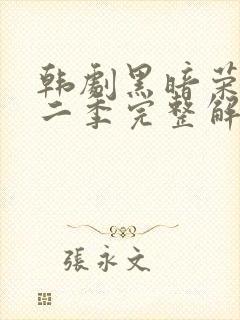 韩剧黑暗荣
二季完整解
張永文